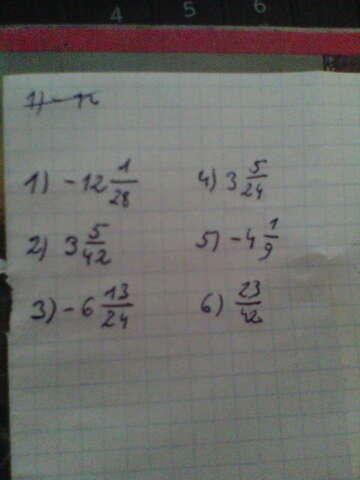 4 5 6
1) -12 1/28
2) 3 5/42
3) -6 13/24
4) 3 5/24
5) -4 1/9
6) 23/42